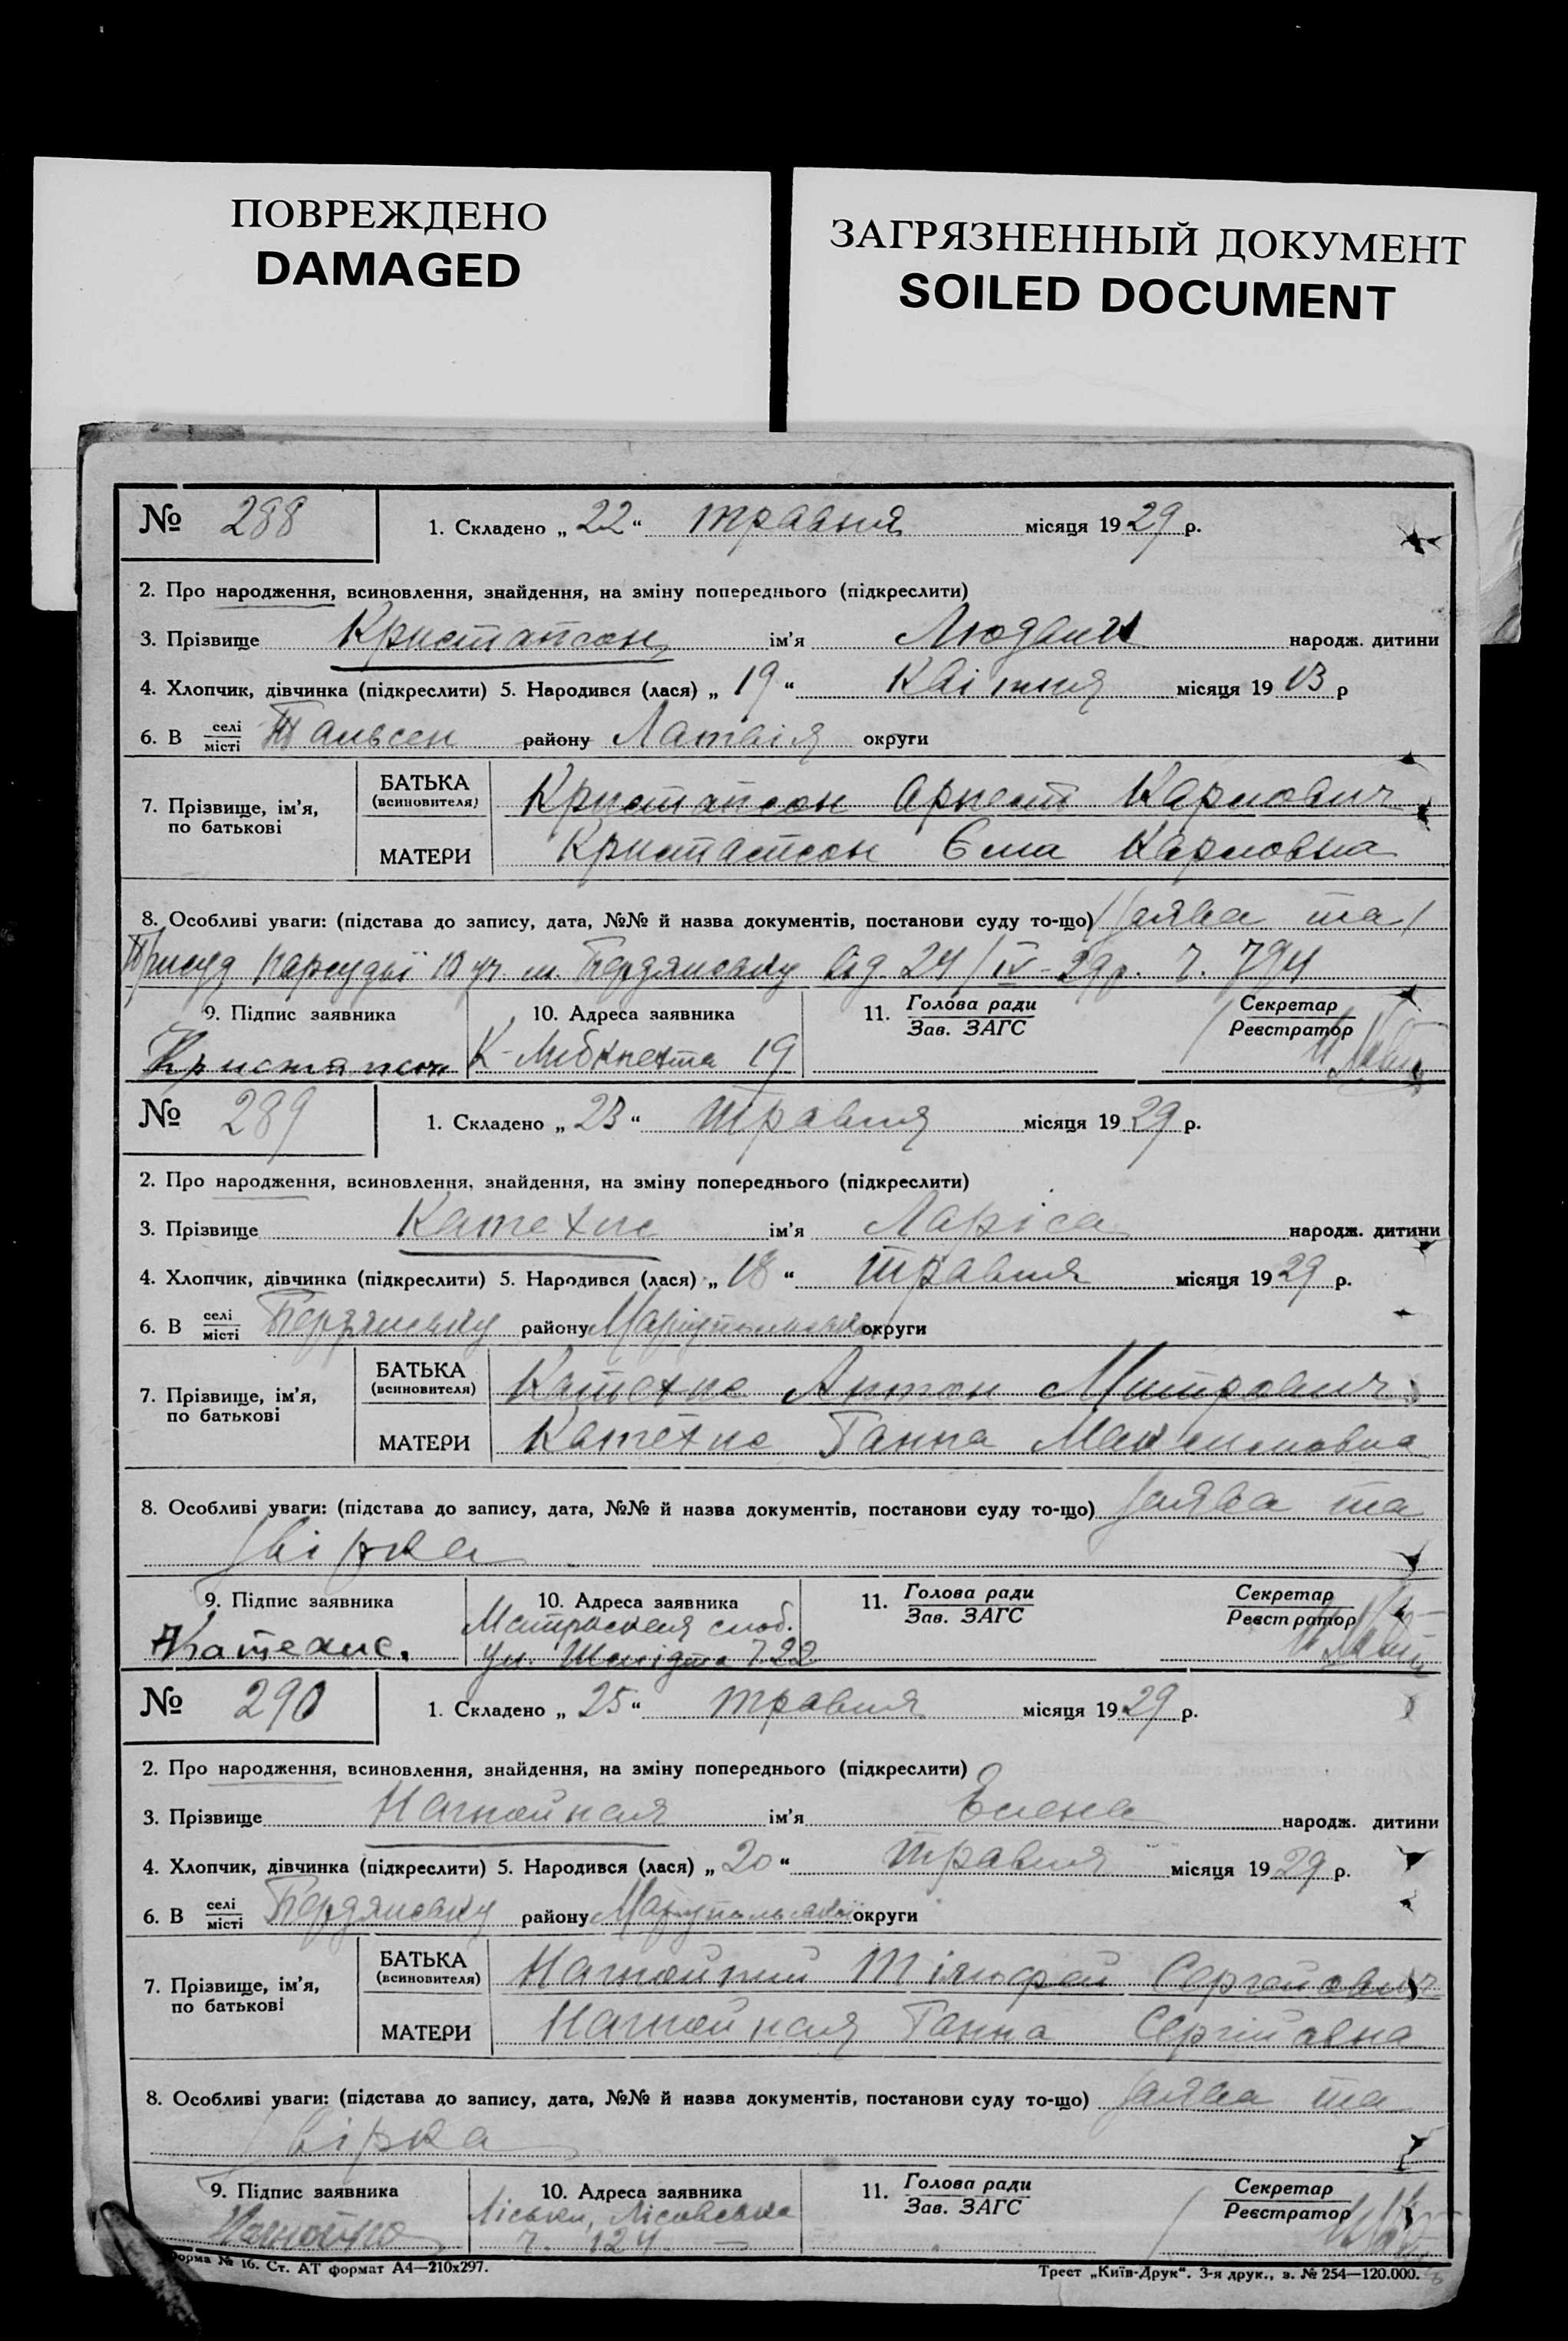 ПОВРЕЖДЕНО
DAMAGED
ЗАГРЯЗНЕННЫЙ ДОКУМЕНТ
SOILED DOCUMENT
№ 288
1. Складено „ 22 “ травня місяця 1929 р.
2. Про народження, всиновлення, знайдення, на зміну попереднього (підкреслити)
3. Прізвище Кристапсон ім'я Людвиг народж. дитини
4. Хлопчик, дівчинка (підкреслити) 5. Народився (лася) „ 19 “ Квітня місяця 1913 р
6. В селі місті Тальсен району Латвія округи
7. Прізвище, ім'я, по батькові
БАТЬКА (всиновителя) Кристапсон Арнест Карлович
МАТЕРИ Кристапсон Єма Карловна
8. Особливі уваги: (підстава до запису, дата, №№ й назва документів, постанови суду то-що) Заява та
Присуд Нарсудві 10 уч. м. Бердянську від 24/IV-29р. ч. 794
9. Підпис заявника
Кристапсон
10. Адреса заявника
К-Либкнехта 19
11. Голова ради
Зав. ЗАГС
Секретар
Реєстратор
№ 289
1. Складено „ 23 “ травня місяця 1929 р.
2. Про народження, всиновлення, знайдення, на зміну попереднього (підкреслити)
3. Прізвище Катехис ім'я Ларіса народж. дитини
4. Хлопчик, дівчинка (підкреслити) 5. Народився (лася) „ 18 “ травня місяця 1929 р.
6. В селі місті Бердянську району Маріупольської округи
7. Прізвище, ім'я, по батькові
БАТЬКА (всиновителя) Катехис Антон Митрович
МАТЕРИ Катехис Ганна Максимовна
8. Особливі уваги: (підстава до запису, дата, №№ й назва документів, постанови суду то-що) Заява та
звірка
9. Підпис заявника
Катехис.
10. Адреса заявника
слоб.
ул. Шмідта ч. 22
11. Голова ради
Зав. ЗАГС
Секретар
Реєстратор
№ 290
1. Складено „ 25 “ травня місяця 1929 р.
2. Про народження, всиновлення, знайдення, на зміну попереднього (підкреслити)
3. Прізвище Нагнойная ім'я Елена народж. дитини
4. Хлопчик, дівчинка (підкреслити) 5. Народився (лася) „ 20 “ травня місяця 1929 р.
6. В селі місті Бердянську району Маріупольської округи
7. Прізвище, ім'я, по батькові
БАТЬКА (всиновителя) Нагнойний Тімофей Сергійович
МАТЕРИ Нагнойная Ганна Сергійовна
8. Особливі уваги: (підстава до запису, дата, №№ й назва документів, постанови суду то-що) Заява та
звірка
9. Підпис заявника
10. Адреса заявника
Ліски, Лісовська
ч. 124
11. Голова ради
Зав. ЗАГС
Секретар
Реєстратор
Форма № 16. Ст. АТ формат А4—210х297.
Трест „Київ-Друк“. 3-я друк., з. № 254—120.000.